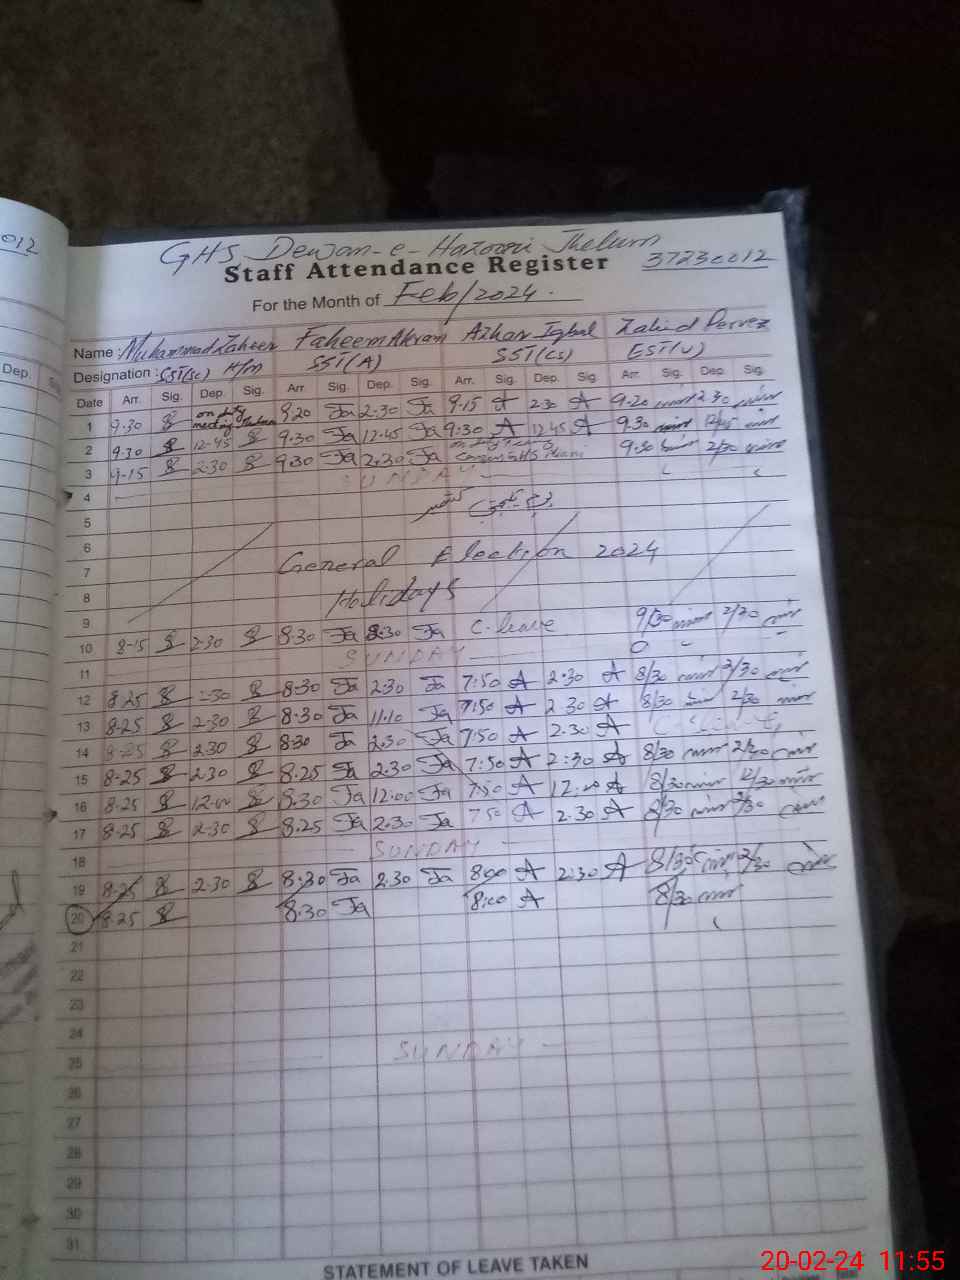 012
GHS Dewan-e-Hazoori Jhelum
Staff Attendance Register 37230012
For the Month of Feb/2024.
Name: Muhammad Zaheer Faheem Akram Azhar Iqbal Zahid Pervez
Designation: SST(SC) H/M SST(A) SST(CS) EST(U)
Dep. Sig.
Date Arr. Sig. Dep. Sig. Arr. Sig. Dep. Sig. Arr. Sig. Dep. Sig. Arr. Sig. Dep. Sig.
1 9-30 on duty meeting 8.20 2-30 9-15 2-30 9-20 2-30
2 9.30 12-45 9.30 12.45 9:30 12.45 9.30 12/45
3 9-15 2-30 9.30 2.30 9.30 2/30
4 SUNDAY
5
6
7 General Election 2024
8 Holidays
9
10 8-15 2-30 8.30 2.30 C-leave 9/30 2/30
11 SUNDAY
12 8.25 2-30 8.30 2.30 7:50 2.30 8/30 2/30
13 8-25 2-30 8.30 11.10 7:50 2.30 8/30 2/30
14 8-25 2.30 8.30 2.30 7:50 2.30
15 8-25 2-30 8.25 2.30 7:50 2:30 8/30 2/30
16 8-25 12.00 8.30 12.00 7:50 12.00 8/30 12/30
17 8-25 2-30 8.25 2.30 7 50 2.30 8/30 2/30
18 SUNDAY
19 8-25 2-30 8.30 2.30 8:00 2.30 8/30 2/30
20 8.25 8.30 8:00 8/30
21
22
23
24
25 SUNDAY
26
27
28
29
30
31
STATEMENT OF LEAVE TAKEN
20-02-24 11:55